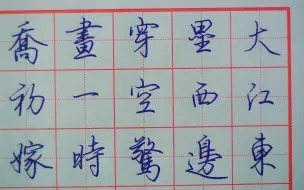 大江東
壘西邊
穿空驚
畫一時
喬初嫁